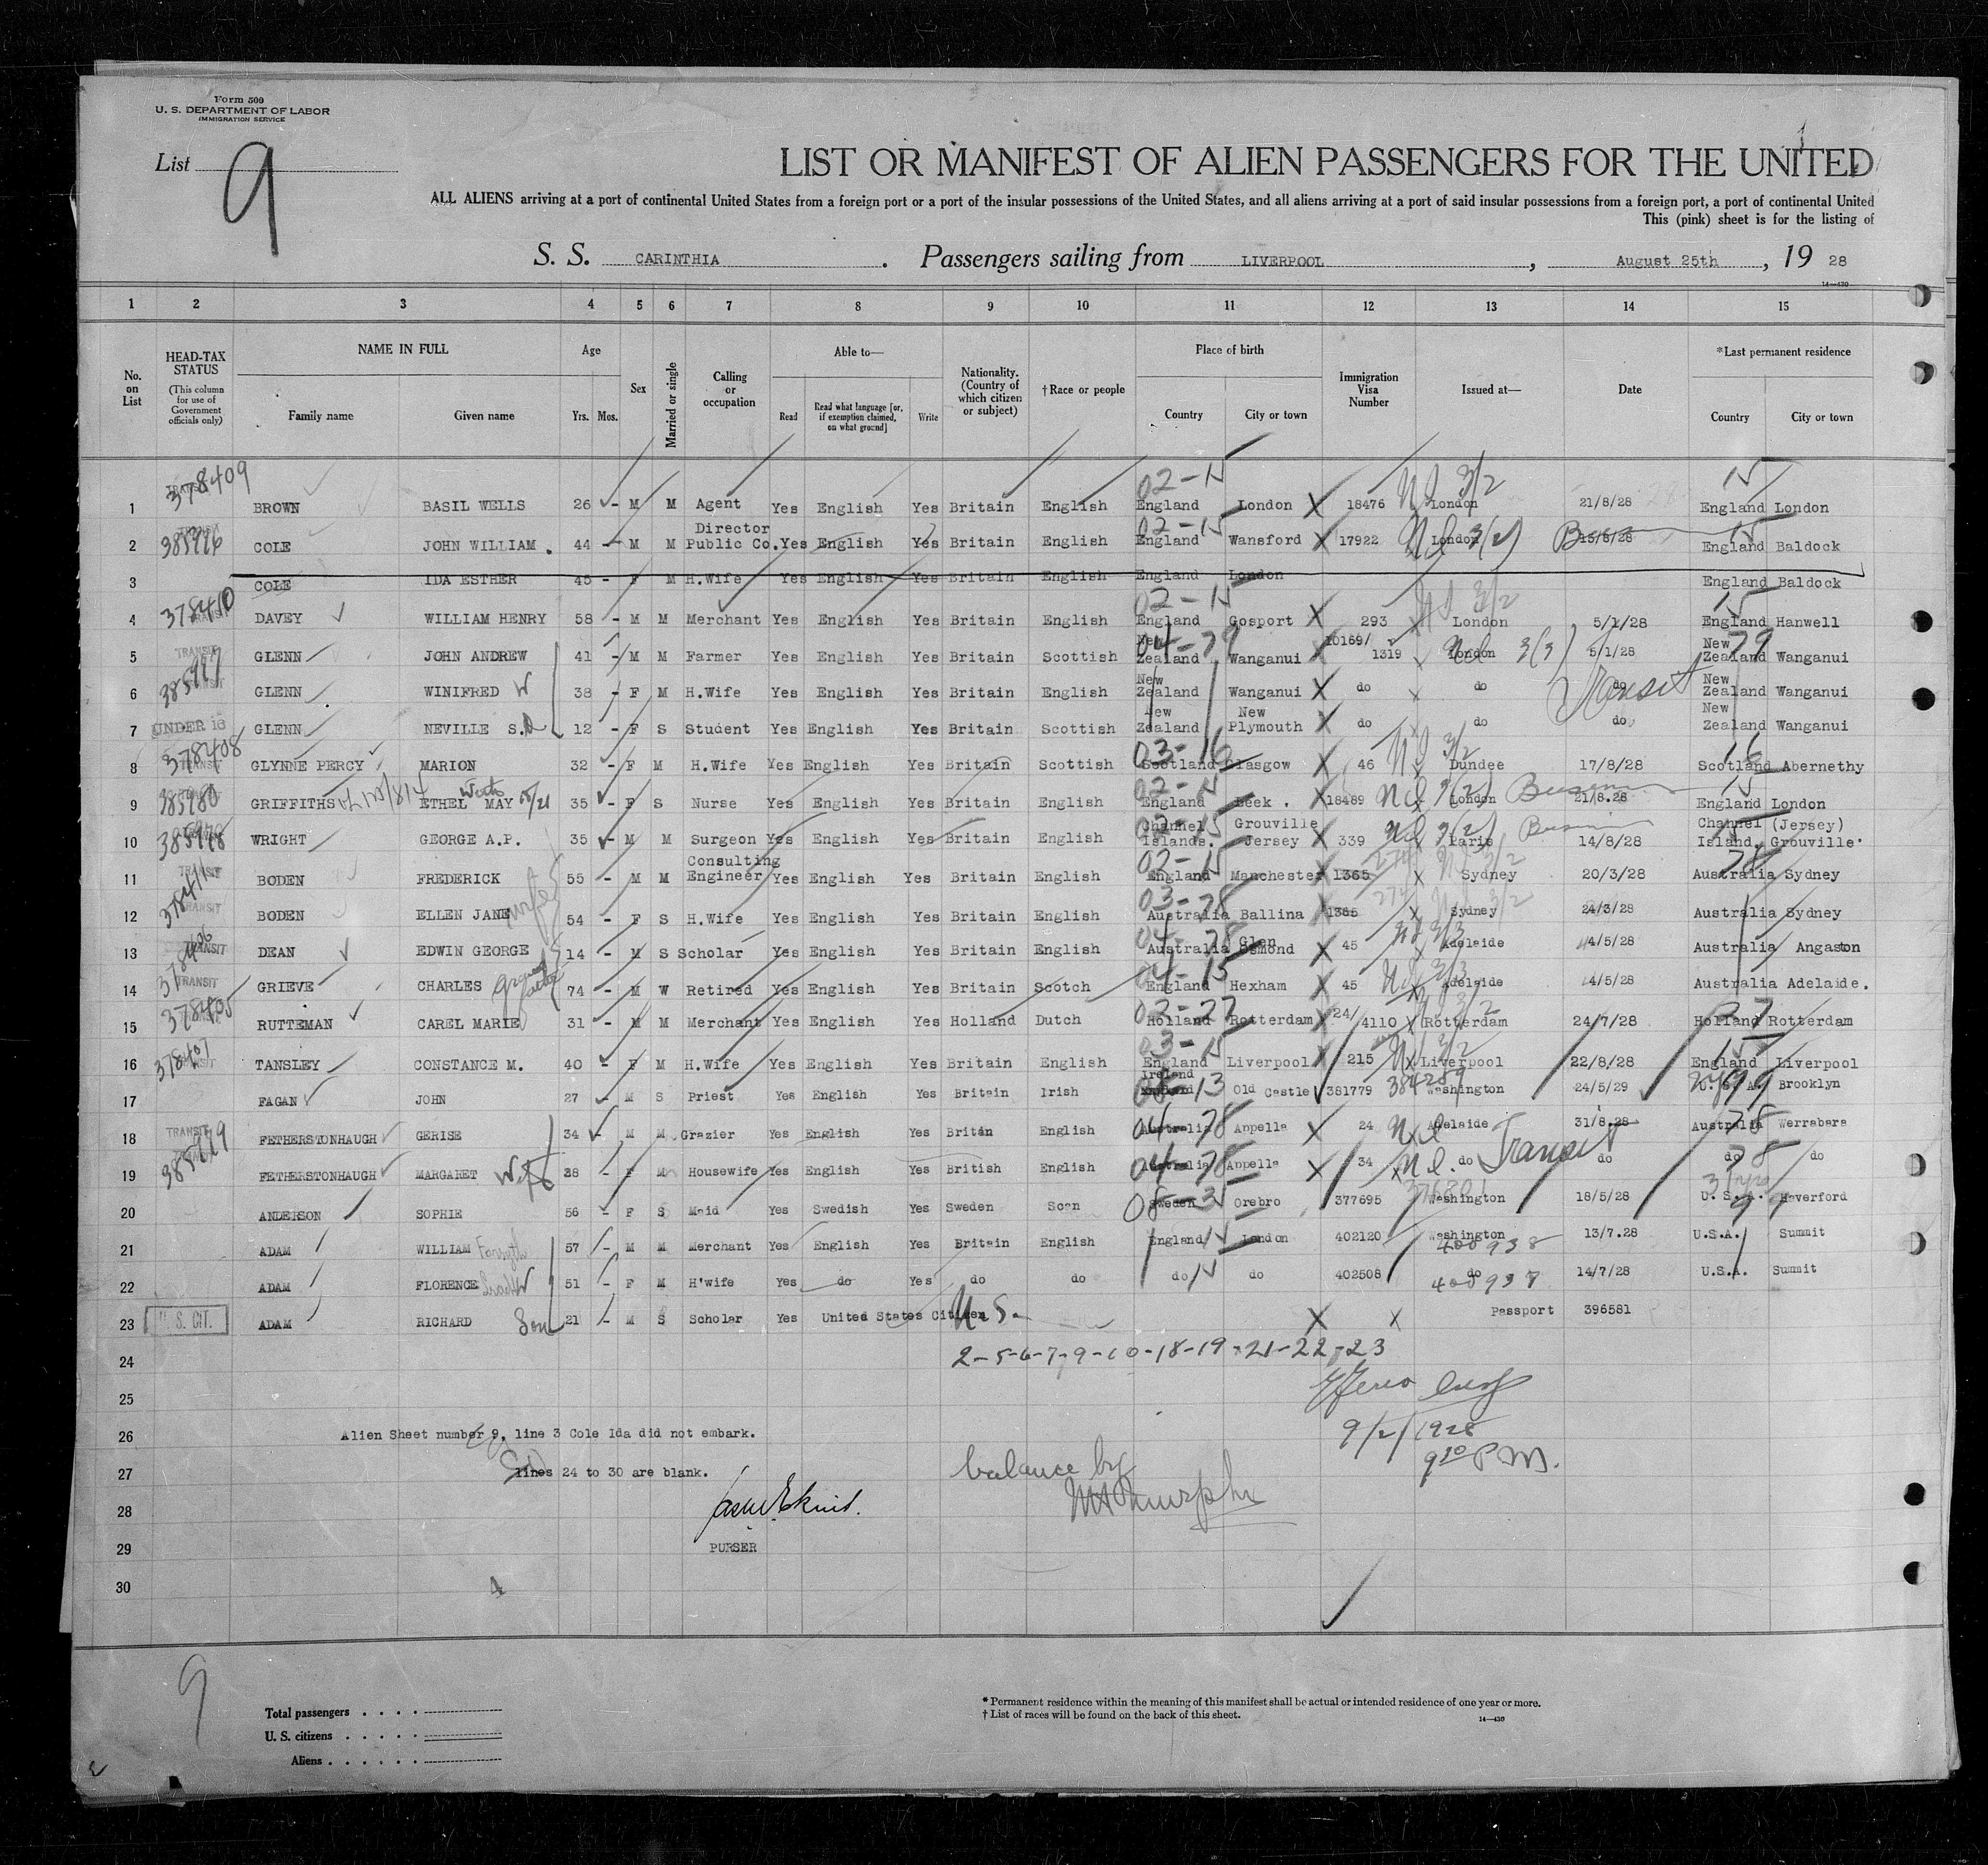 Form 500
U. S. DEPARTMENT OF LABOR
IMMIGRATION SERVICE
List 9
LIST OR MANIFEST OF ALIEN PASSENGERS FOR THE UNITED
ALL ALIENS arriving at a port of continental United States from a foreign port or a port of the insular possessions of the United States, and all aliens arriving at a port of said insular possessions from a foreign port, a port of continental United
This (pink) sheet is for the listing of
S. S. CARINTHIA. Passengers sailing from LIVERPOOL, August 25th, 19 28
14-430
1 2 3 4 5 6 7 8 9 10 11 12 13 14 15
No. on List
HEAD-TAX STATUS (This column for use of Government officials only)
NAME IN FULL Family name Given name
Age Yrs. Mos.
Sex
Married or single
Calling or occupation
Able to— Read Read what language [or, if exemption claimed, on what ground] Write
Nationality. (Country of which citizen or subject)
†Race or people
Place of birth Country City or town
Immigration Visa Number
Issued at—
Date
*Last permanent residence Country City or town
1 378409 BROWN BASIL WELLS 26 - M M Agent Yes English Yes Britain English 02-15 England London X 18476 London 3/2 21/8/28 15 England London
2 TRANSIT COLE JOHN WILLIAM. 44 - M M Director Public Co. Yes English Yes Britain English 02-15 England Wansford X 17922 London 3(2) 15/8/28 15 England Baldock
3 COLE IDA ESTHER 45 - F M H.Wife Yes English Yes Britain English England London England Baldock
4 378410 TRANSIT DAVEY WILLIAM HENRY 58 - M M Merchant Yes English Yes Britain English 02-15 England Gosport X 293 London 3/2 5/1/28 15 England Hanwell
5 TRANSIT GLENN JOHN ANDREW 41 - M M Farmer Yes English Yes Britain Scottish 04-79 New Zealand Wanganui X 10169/1319 London 3(3) 5/1/28 79 New Zealand Wanganui
6 385977 TRANSIT GLENN WINIFRED W 38 - F M H.Wife Yes English Yes Britain English New Zealand Wanganui X do do do Transit New Zealand Wanganui
7 UNDER 16 GLENN NEVILLE S. 12 - F S Student Yes English Yes Britain Scottish New Zealand New Plymouth X do do do New Zealand Wanganui
8 378408 TRANSIT GLYNNE PERCY MARION 32 - F M H.Wife Yes English Yes Britain Scottish 03-16 Scotland Glasgow X 46 Dundee 3/2 17/8/28 16 Scotland Abernethy
9 385980 GRIFFITHS ETHEL MAY 35 - F S Nurse Yes English Yes Britain English 02-15 England Leek. X 18489 London 3(2) 21/8.28 15 England London
10 385978 WRIGHT GEORGE A.P. 35 - M M Surgeon Yes English Yes Britain English 02-15 Channel Islands. Grouville Jersey X 339 Paris 3(2) 14/8/28 15 Channel Island. (Jersey) Grouville
11 TRANSIT BODEN FREDERICK 55 - M M Consulting Engineer Yes English Yes Britain English 02-15 England Manchester X 1365 Sydney 3/2 20/3/28 78 Australia Sydney
12 378411 TRANSIT BODEN ELLEN JANE wife 54 - F S H.Wife Yes English Yes Britain English 03-78 Australia Ballina X 1365 Sydney 3/2 24/3/28 Australia Sydney
13 TRANSIT DEAN EDWIN GEORGE 14 - M S Scholar Yes English Yes Britain English 04-78 Australia Glen Osmond X 45 Adelaide 3/3 4/5/28 Australia Angaston
14 378406 TRANSIT GRIEVE CHARLES grand father 74 - M W Retired Yes English Yes Britain Scotch 04-15 England Hexham X 45 Adelaide 3/3 4/5/28 Australia Adelaide.
15 378405 RUTTEMAN CAREL MARIE 31 - M M Merchant Yes English Yes Holland Dutch 03-27 Holland Rotterdam X 24/4110 Rotterdam 3/2 24/7/28 27 Holland Rotterdam
16 378407 TRANSIT TANSLEY CONSTANCE M. 40 - F M H.Wife Yes English Yes Britain English 03-15 England Liverpool X 215 Liverpool 3/2 22/8/28 15 England Liverpool
17 FAGAN JOHN 27 - M S Priest Yes English Yes Britain Irish 08-13 Ireland Old Castle 381779 384259 Washington 24/5/29 99 U.S.A. Brooklyn
18 TRANSIT FETHERSTONHAUGH GERISE 34 M M Grazier Yes English Yes Britán English 04-78 Australia Appella X 24 Adelaide 31/8.28 78 Australia Werrabara
19 385979 FETHERSTONHAUGH MARGARET Wife 28 - F M Housewife Yes English Yes British English 04-78 Australia Appella X 34 do Transit do 78 do do
20 ANDERSON SOPHIE 56 - F S Maid Yes Swedish Yes Sweden Scan 08-35 Sweden Orebro 377695 Washington 18/5/28 U.S.A. Haverford
21 ADAM WILLIAM Forsyth 57 - M M Merchant Yes English Yes Britain English England 15 London 402120 Washington 400938 13/7.28 U.S.A. Summit
22 ADAM FLORENCE W 51 - F M H'wife Yes do Yes do do do 15 do 402508 do 400937 14/7/28 U.S.A. Summit
23 U.S. CIT. ADAM RICHARD Son 21 - M S Scholar Yes United States Citizen U.S. X X Passport 396581
24 2-5-6-7-9-10-18-19-21-22-23
25
9/2/1928
26 Alien Sheet number 9, line 3 Cole Ida did not embark.
9 20 P M.
27 lines 24 to 30 are blank.
balance by
28
29 PURSER
30
4
9
Total passengers
U. S. citizens
Aliens
* Permanent residence within the meaning of this manifest shall be actual or intended residence of one year or more.
† List of races will be found on the back of this sheet.
14-430